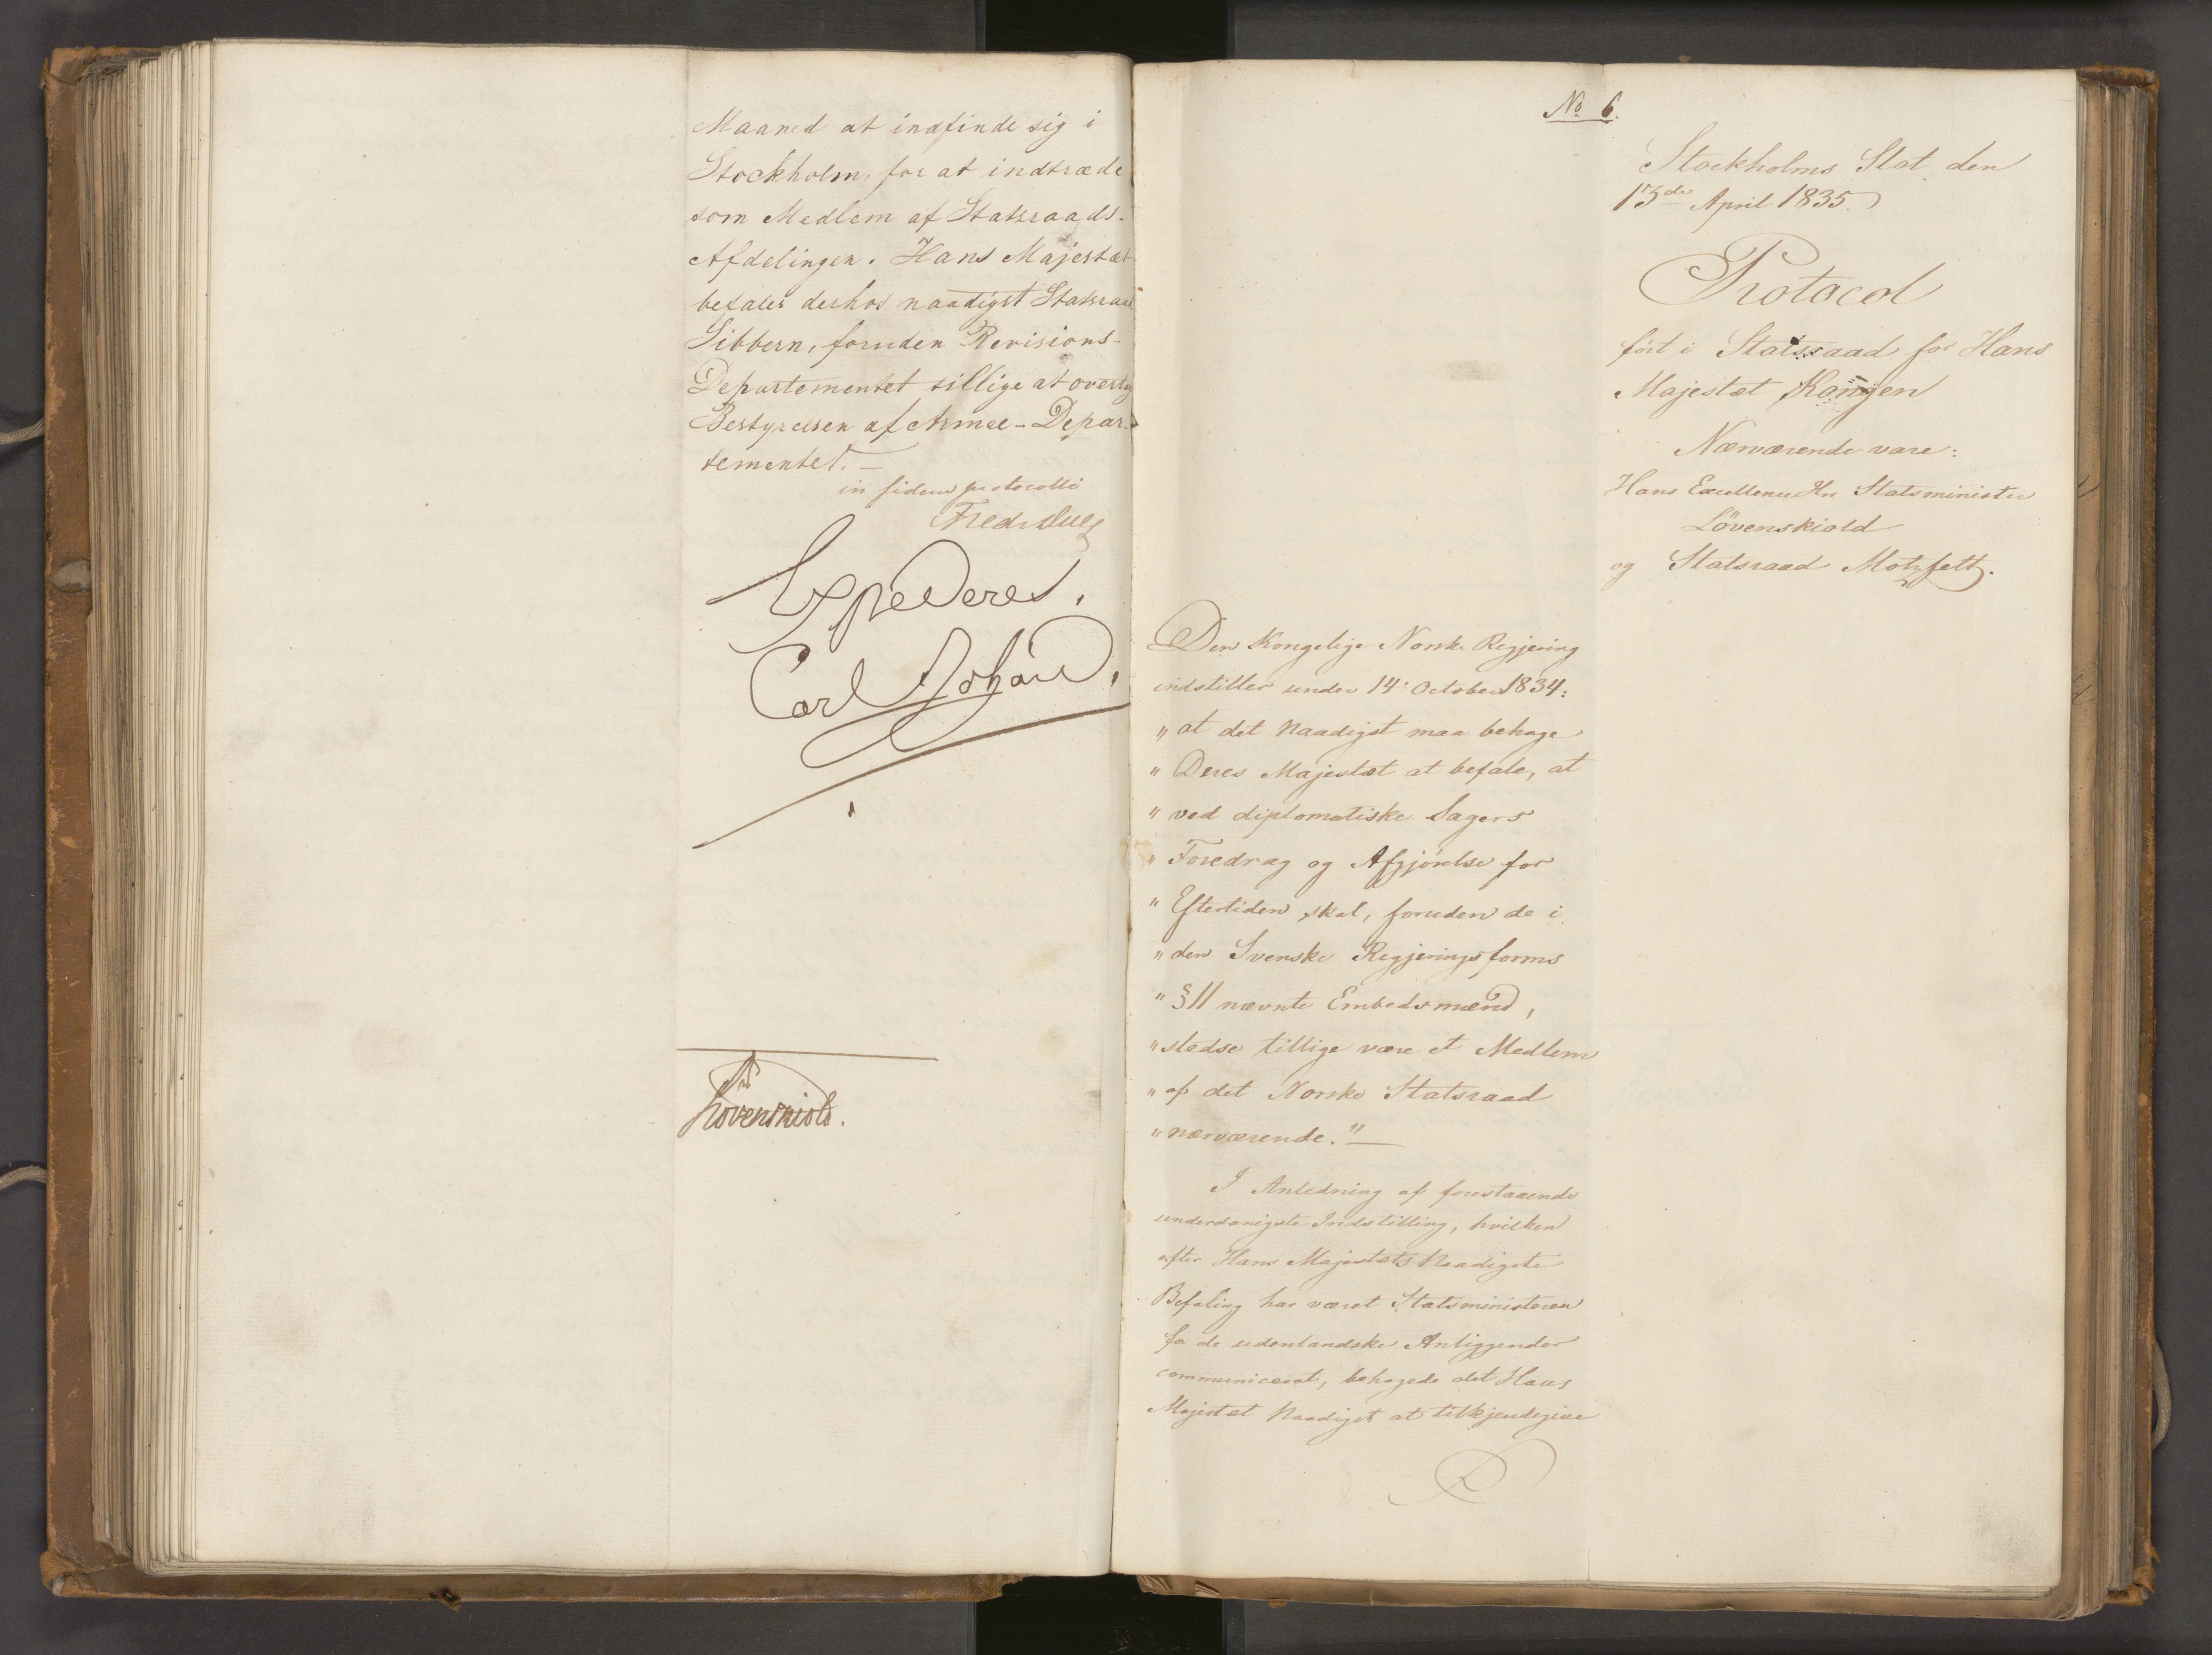 Maaned at indfinde sig i
Stockholm, for at indtræde
som Medlem af Statsraads-
Afdelingen. Hans Majestæt
befaler derhos naadigst Statsraad
Sibbern, foruden Revisions-
Departementet tillige at overtag
Bestyrelsen af Armee-Depar-
tementet. —
in fidem protocolli
Fredr Due
Expederes.
Carl Johan.
Løvenskiold.
No 6.
Stockholms Slot den
13de April 1835.
Protocol
ført i Statsraad for Hans
Majestæt Kongen
Nærværende vare:
Hans Excellence Hr Statsminister
Lövenskiold
og Statsraad Motzfeldt.
Den Kongelige Norske Regjering
indstiller under 14. October 1834:
„at det Naadigst maa behage
„Deres Majestæt at befale, at
„ved diplomatiske Sagers
„Foredrag og Afgjörelse for
„Eftertiden skal, foruden de i
„den Svenske Regjeringsforms
„§ 11 nævnte Embedsmænd,
„stedse tillige være et Medlem
„af det Norske Statsraad
„nærværende." —
I Anledning af forestaaende
underdanigste Indstilling, hvilken
efter Hans Majestæts Naadigste
Befaling har været Statsministeren
for de udenlandske Anliggender
communiceret, behagede det Hans
Majestæt Naadigst at tilkjendegive